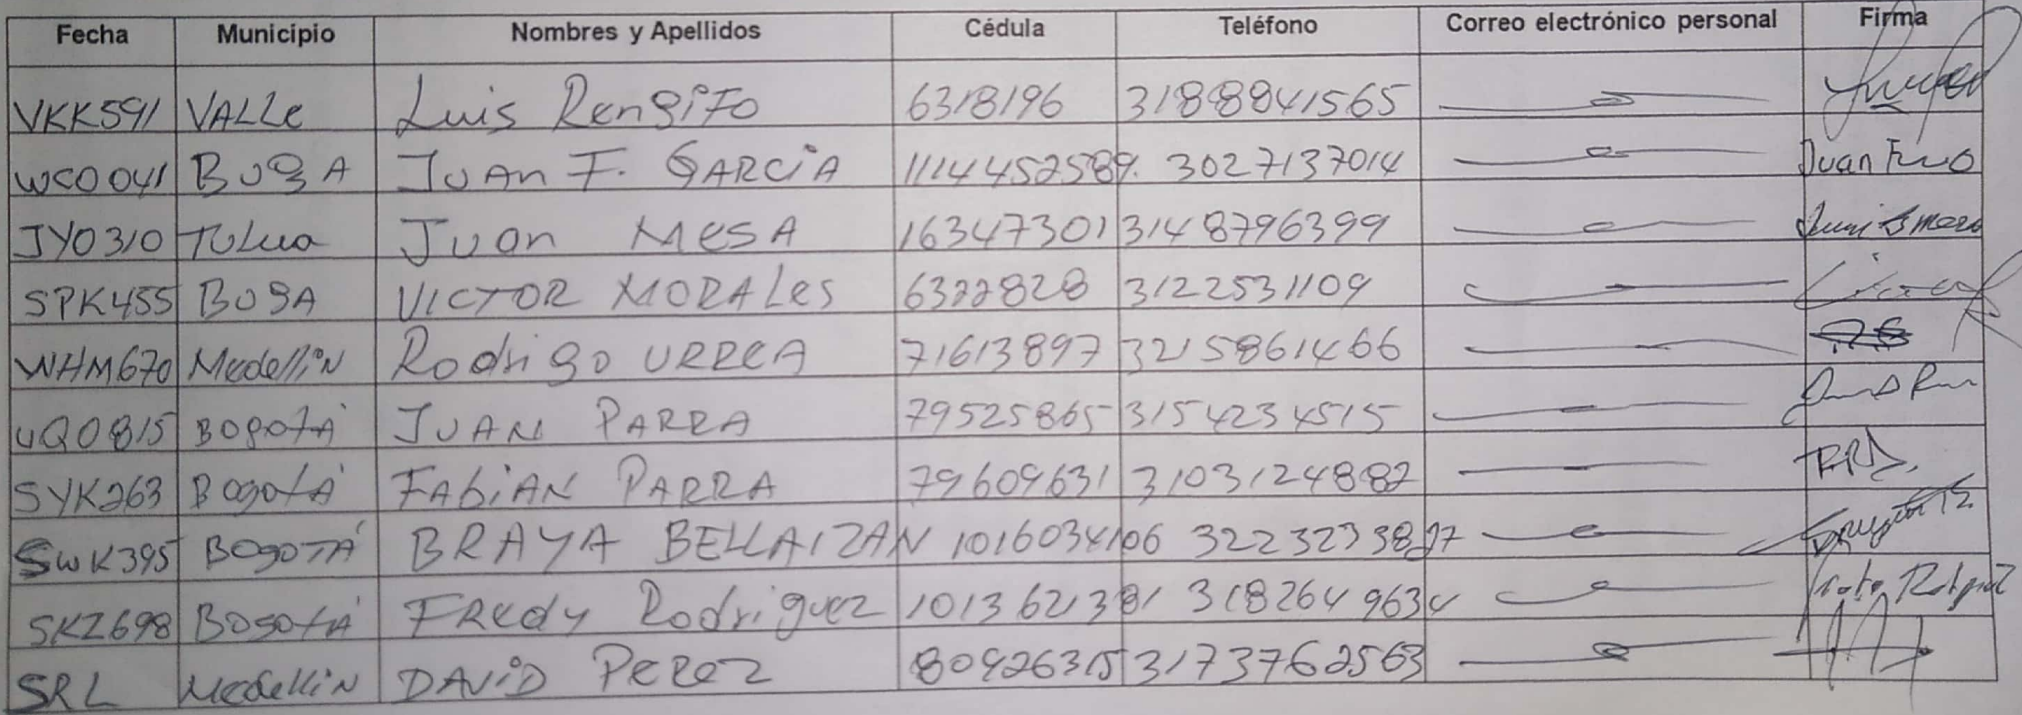 Fecha Municipio Nombres y Apellidos Cédula Teléfono Correo electrónico personal Firma
VKK591 VALLe Luis RengiFo 6318196 3188841565
WCO041 BUgA JUAn F. GARCiA 1114452589. 3027137014 Juan
JYO310 TULua JUan MesA 16347301 3148796399
SPK455 BUgA VICTOR MORALes 6322828 3122531109
WHM670 MedellíN Rodrigo URREA 71613897 3215861466
UQO815 BogotÁ JUAN PARRA 79525865 3154234515
SYK263 BogotÁ FAbiAN PARRA 79609631 3103124882
SWK395 BogoTÁ BRAYA BELLAIZAN 1016034106 3223233827
SKZ698 BogotÁ FRedy Rodriguez 1013621381 3182649634
SRL MedellíN DAViD PeRez 80926315 3173762563